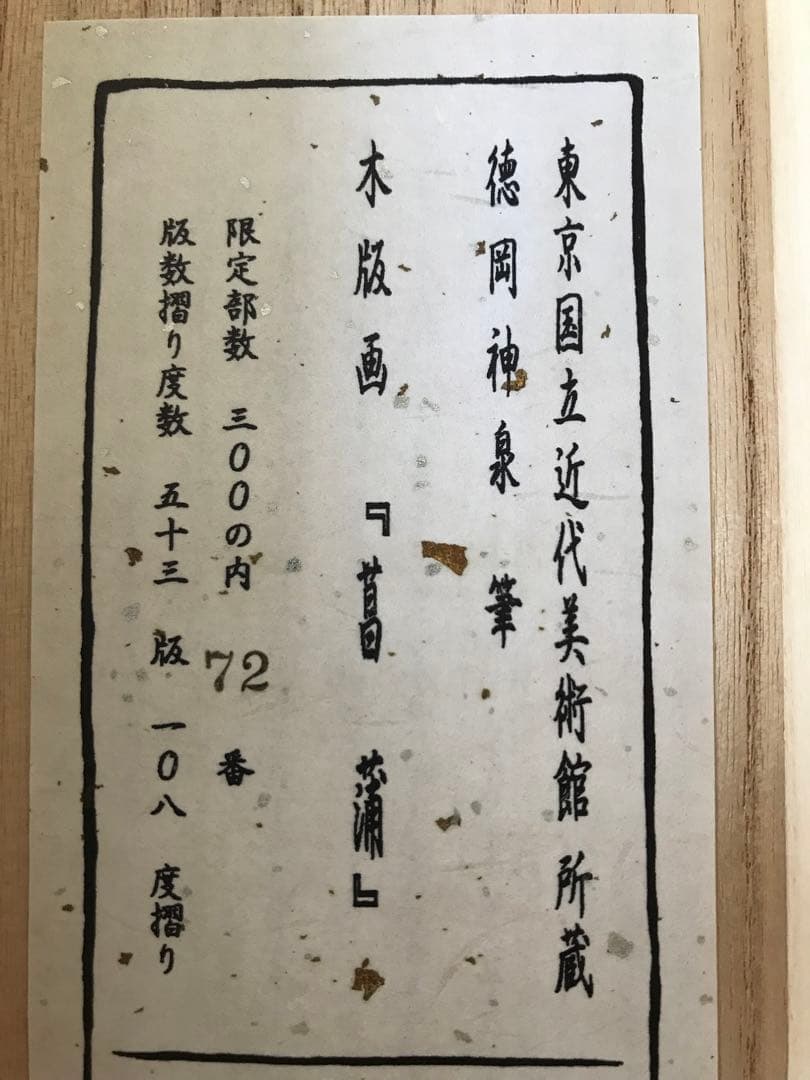 東京国立近代美術館所蔵
徳岡神泉 筆
木版画 『菖蒲』
限定部数 三00の内 72 番
版数摺り度数 五十三 版 一0八 度摺り